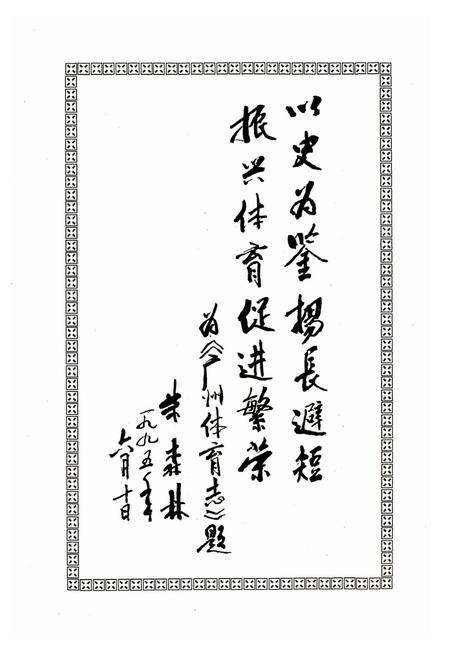 以史为鉴揚長避短
振兴体育促进繁荣
为《广州体育志》题
朱森林
一九九五年
六月十日